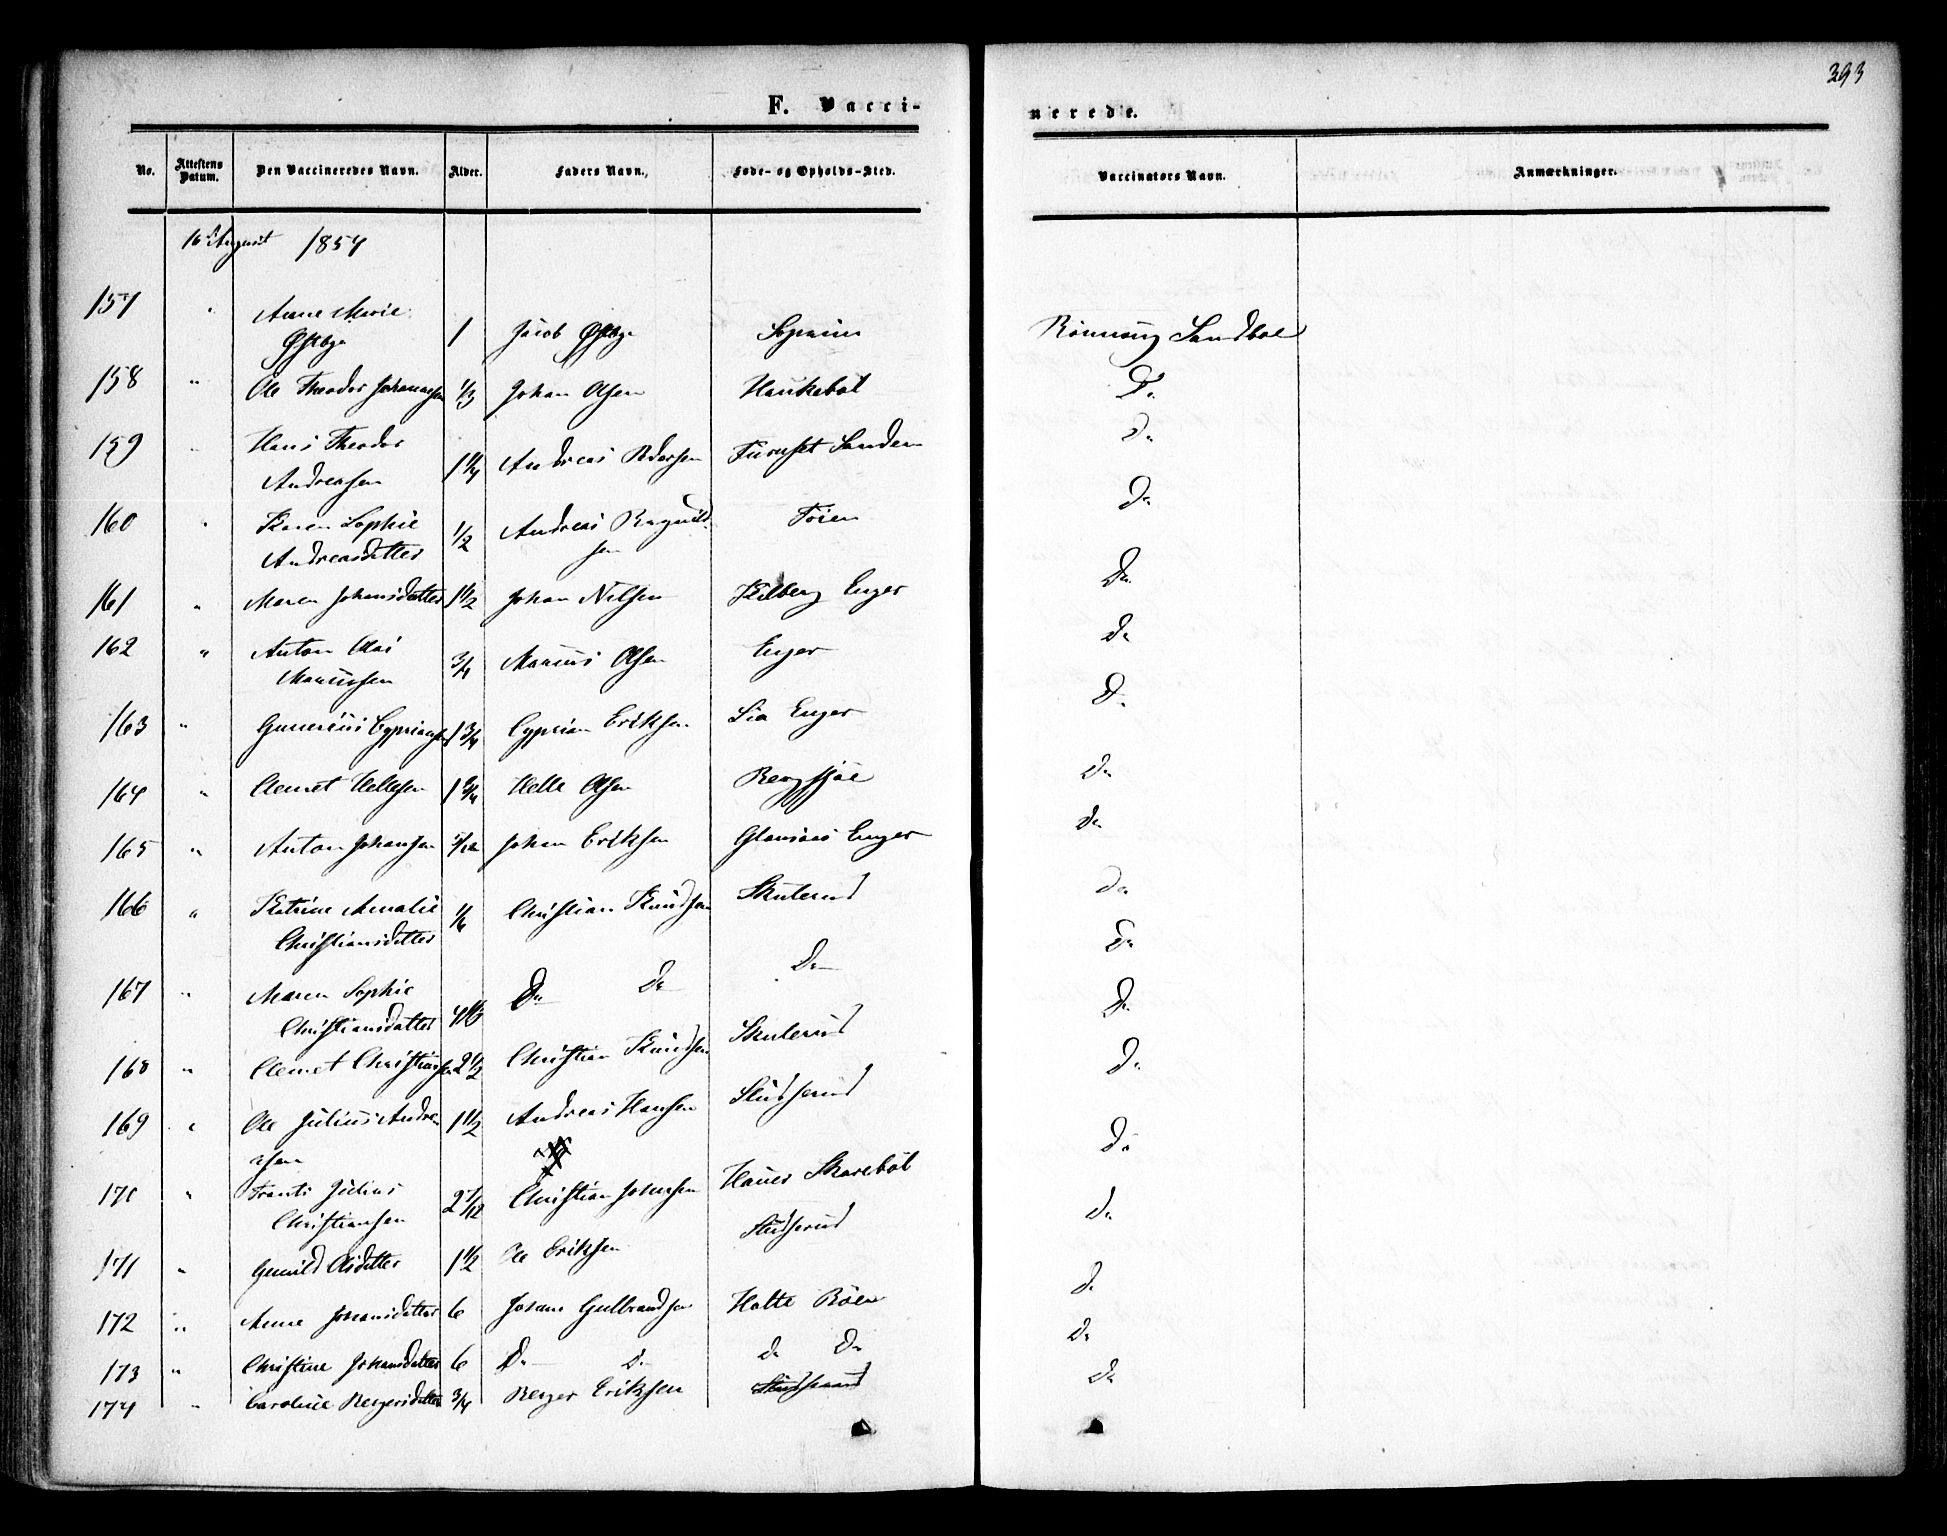 393
F. Vaccinerede.
No. Attestens Datum. Den Vaccineredes Navn. Alder. Faders Navn. Føde- og Opholds-Sted. Vaccinators Navn. Anmærkninger.
16 August 1854
157 " Anne Marie
Østbye 1 Jacob Østbye Rønnoug Sandbøl
158 " Ole Theodor Johannesen 1/3 Johan Olsen Haukebøl Do
159 " Hans Theodor
Andreasen 1 1/4 Andreas Pedersen Furuset Sanden Do
160 " Karen Sophie
Andreasdatter 1/2 Andreas Ragnild
sen Toien Do
161 " Maren Johansdatter 1 1/2 Johan Nilsen Kilberg Enger Do
162 " Anton Olai
Mariussen 3/4 Marius Olsen Enger Do
163 " Gunerius Cypriansen 1 3/4 Cyprian Eriksen Lia Enger Do
164 " Clemet Hellesen 1 3/4 Helle Olsen Bergsjøe Do
165 " Anton Johansen 5/12 Johan Eriksen Enger Do
166 " Katrine Amalie
Christiansdatter 1/6 Christian Knudsen Skuterud Do
167 " Maren Sophie
Christiansdatter 4 1/3 Do Do Do Do
168 " Clemet Christiansen 2 1/2 Christian Knudsen Skuterud Do
169 " Ole Julius Andre
asen 1 1/2 Andreas Hansen Studserud Do
170 " Frants Julius
Christiansen 2 7/12 Christian Johnsen Hauer Skarebøl Do
171 " Gunild Olsdatter 1 1/2 Ole Eriksen Studserud Do
172 " Anne Johansdatter 6 Johan Gulbrandsen Holte Böen Do
173 " Christine Johansdatter 6 Do Do Do Do Do
174 " Caroline Bergersdatter 3/4 Berger Eriksen Studserud Do